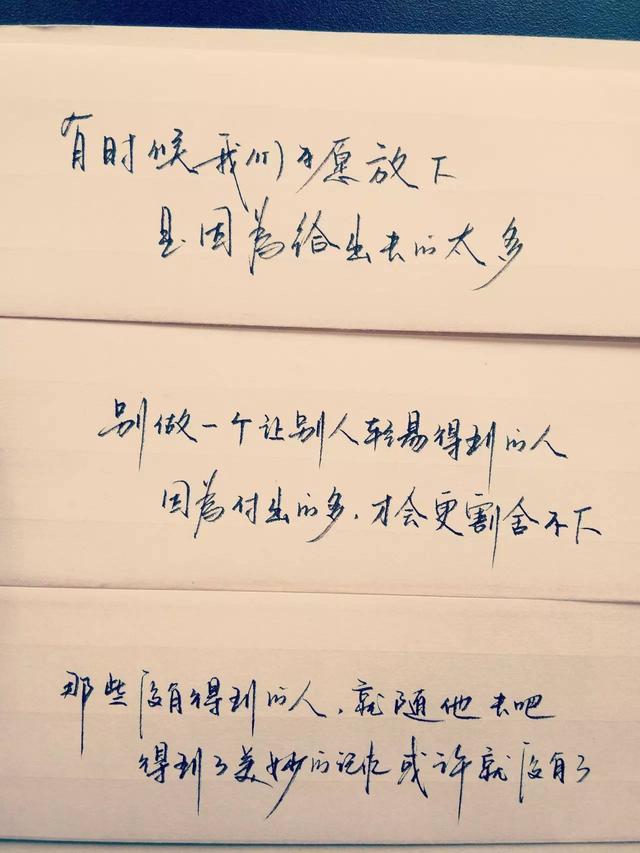 有时候我们不愿放下
是因為给出去的太多
别做一个让别人轻易得到的人
因為付出的多，才会更割舍不下
那些没有得到的人，就随他去吧
得到了美妙的记忆或许就没有了